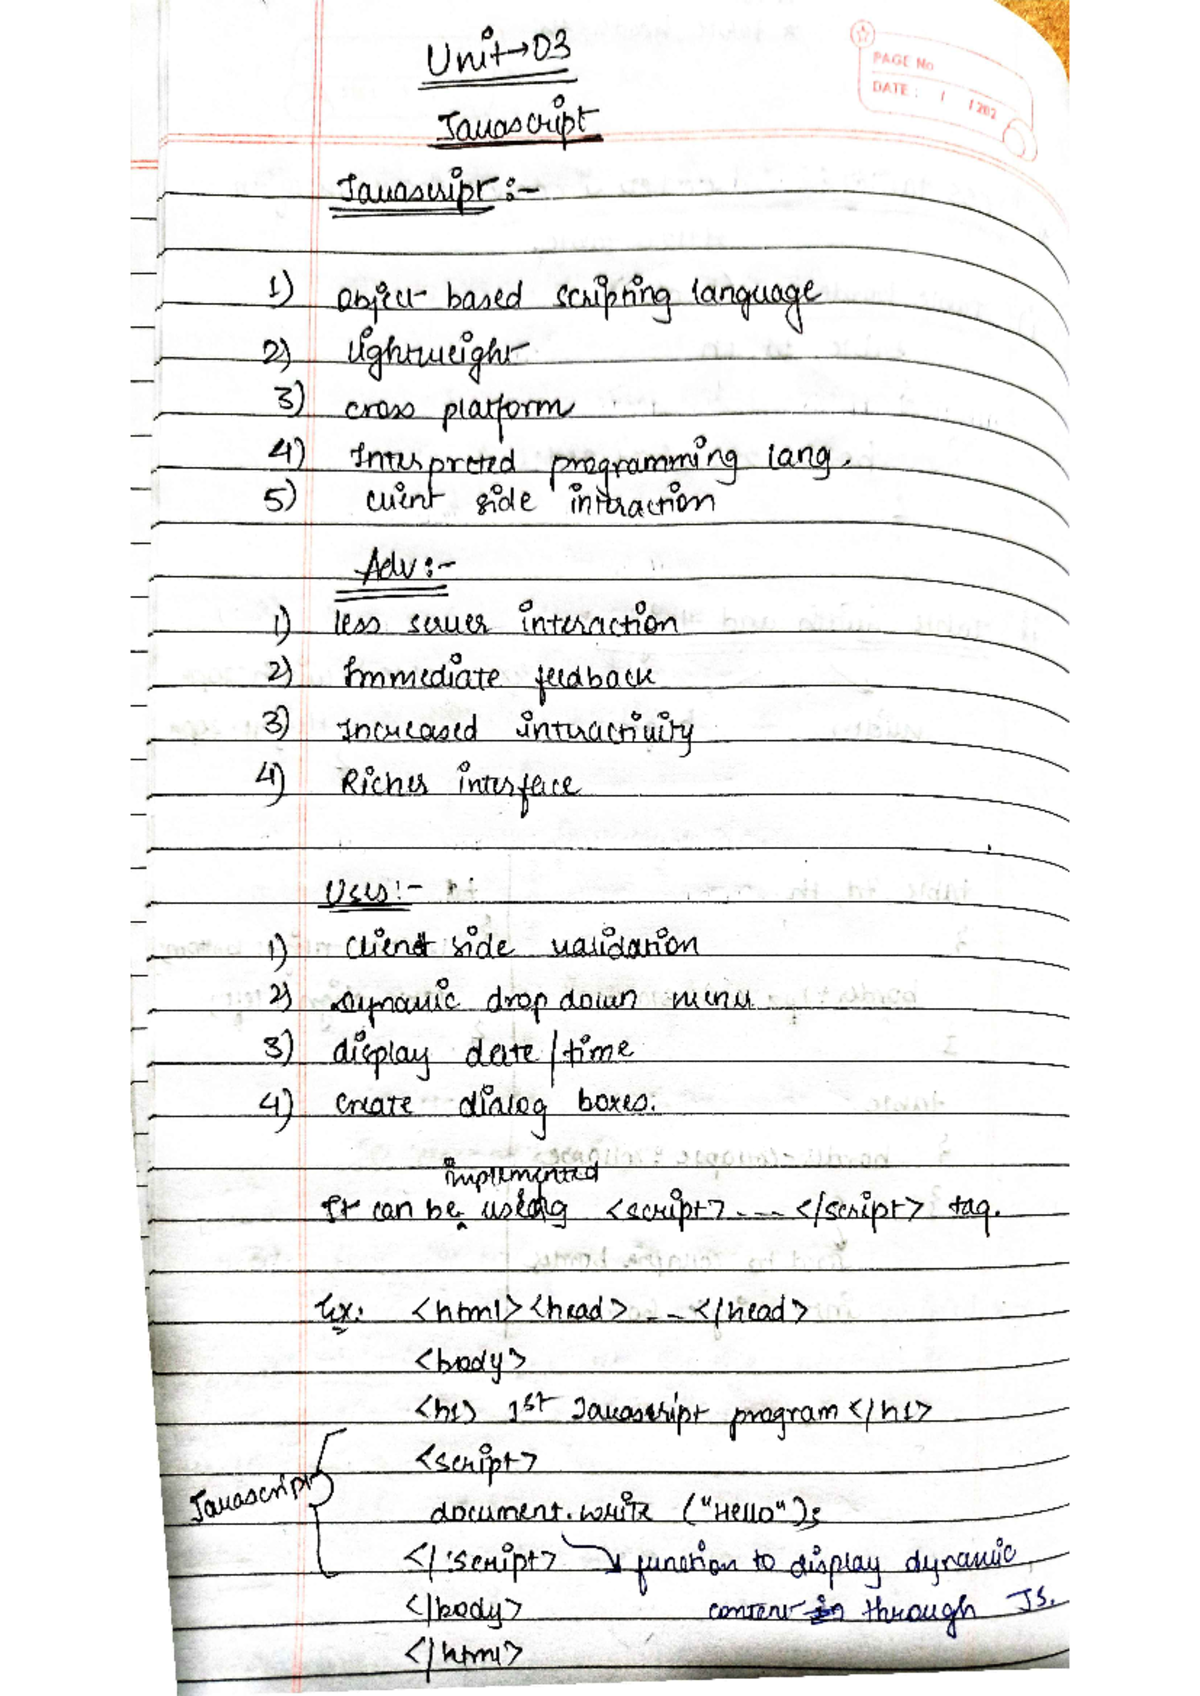 Unit→03
PAGE No
DATE: / /202
Javascript
Javascript:-
1) object-based scripting language
2) lightweight
3) cross platform
4) Interpreted programming lang.
5) client side interaction
Adv:-
1) less server interaction
2) Immediate feedback
3) Increased interactivity
4) Richer interface
Uses:-
1) Client side validation
2) Dynamic drop down menu
3) display date/time
4) create dialog boxes.
implemented
It can be ^ using <script> --- </script> tag.
Ex: <html><head> -- </head>
<body>
<h1> 1st Javascript program </h1>
<script>
Javascript
document.write ("Hello");
</script> → function to display dynamic
</body> content through JS.
</html>